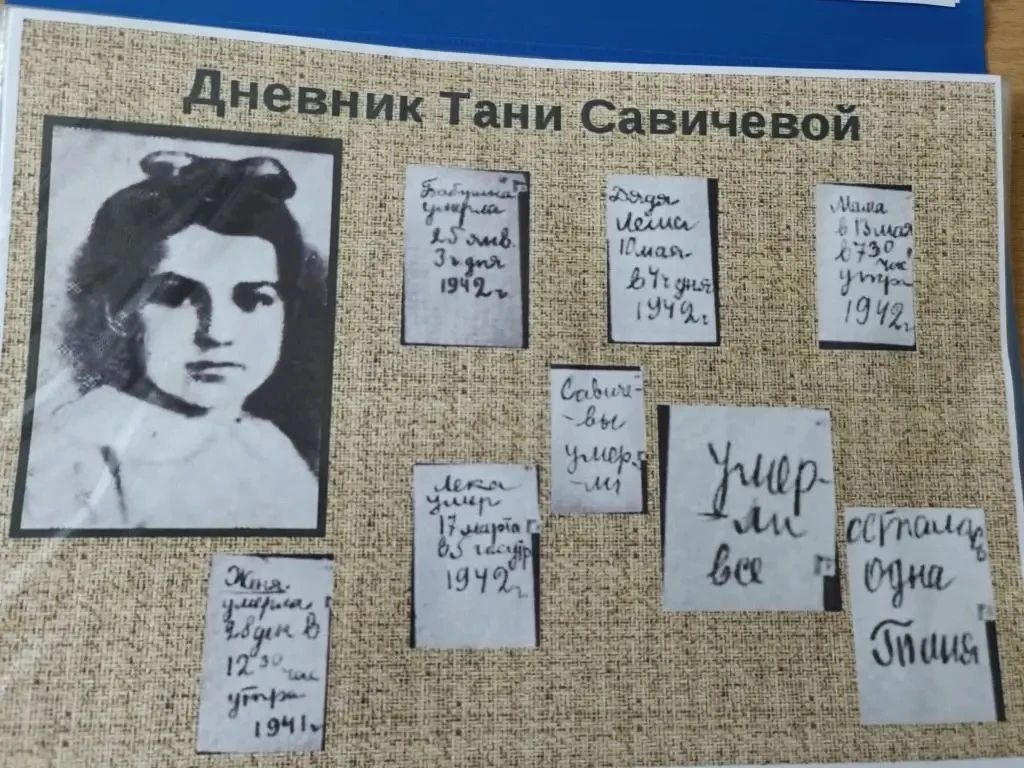 Дневник Тани Савичевой
Бабушка
умерла
25 янв.
3 ч дня
1942 г
Дядя
Леша
10 мая
в 4 ч дня
1942 г
Мама
в 13 мая
в 7 30
час
утра
1942 г
Савиче-
-вы
умер-
-ли
Умер-
-ли
все
Лека
умер
17 марта
в 5 час утр
1942 г
осталась
одна
Таня
Женя
умерла
28 дек в
12 30 час
утра
1941 г